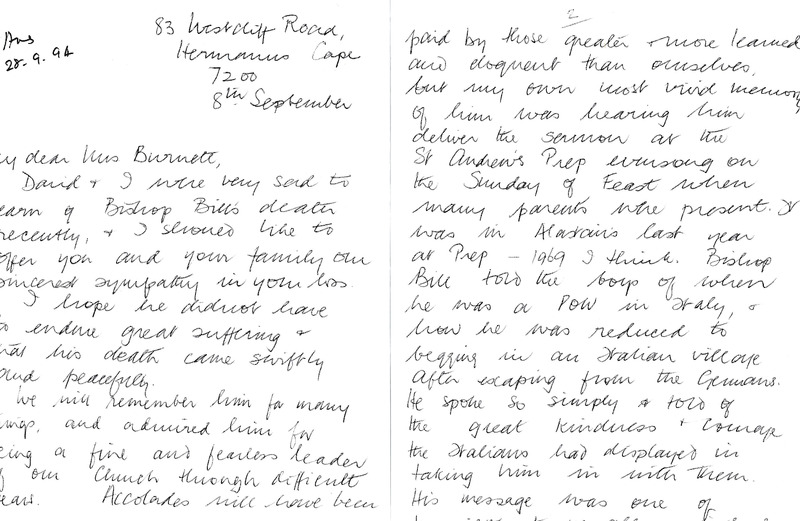 Ans
28.9.94
83 Westcliff Road,
Hermanus Cape
7200
8th September
y dear Mrs Burnett,
David & I were very sad to
earn of Bishop Bill's death
recently, & I should like to
offer you and your family our
sincerest sympathy in your loss.
I hope he did not have
to endure great suffering &
hat his death came swiftly
and peacefully.
We will remember him for many
ings, and admired him for
eing a fine and fearless leader
f our Church through difficult
ears. Accolades will have been
2
paid by those greater & more learned
and eloquent than ourselves,
but my own most vivid memory
of him was hearing him
deliver the sermon at the
St Andrew's Prep evensong on
the Sunday of Feast when
many parents were present. It
was in Alastair's last year
at Prep - 1969 I think. Bishop
Bill told the boys of when
he was a POW in Italy, &
how he was reduced to
begging in an Italian village
after escaping from the Germans.
He spoke so simply & told of
the great kindness & courage
the Italians had displayed in
taking him in with them.
His message was one of